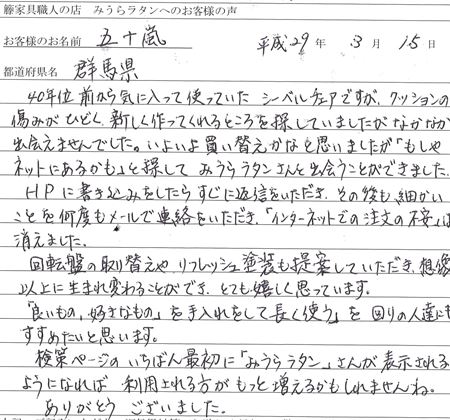 籐家具職人の店 みうらラタンへのお客様の声
お客様のお名前 五十嵐 平成29年 3月 15日
都道府県名 群馬県
40年位前から気に入って使っていた シーベルチェアですが、クッションの
傷みがひどく、新しく作ってくれるところを探していましたがなかなか
出会えませんでした。いよいよ買い替えかなと思いましたが「もしや
ネットにあるかも」と探して みうらラタンさんと出会うことができました。
HPに書き込みをしたらすぐに返信をいただき、その後も細かい
ことを何度もメールで連絡をいただき、「インターネットでの注文の不安」は
消えました。
回転盤の取り替えや、リフレッシュ塗装も提案していただき、想像
以上に生まれ変わることができ、とても嬉しく思っています。
「良いもの、好きなもの」を手入れをして長く使う」を 回りの人達にも
すすめたいと思います。
検索ページのいちばん最初に「みうらラタン」さんが表示される
ようになれば 利用される方が もっと増えるかもしれませんね。
ありがとう ございました。